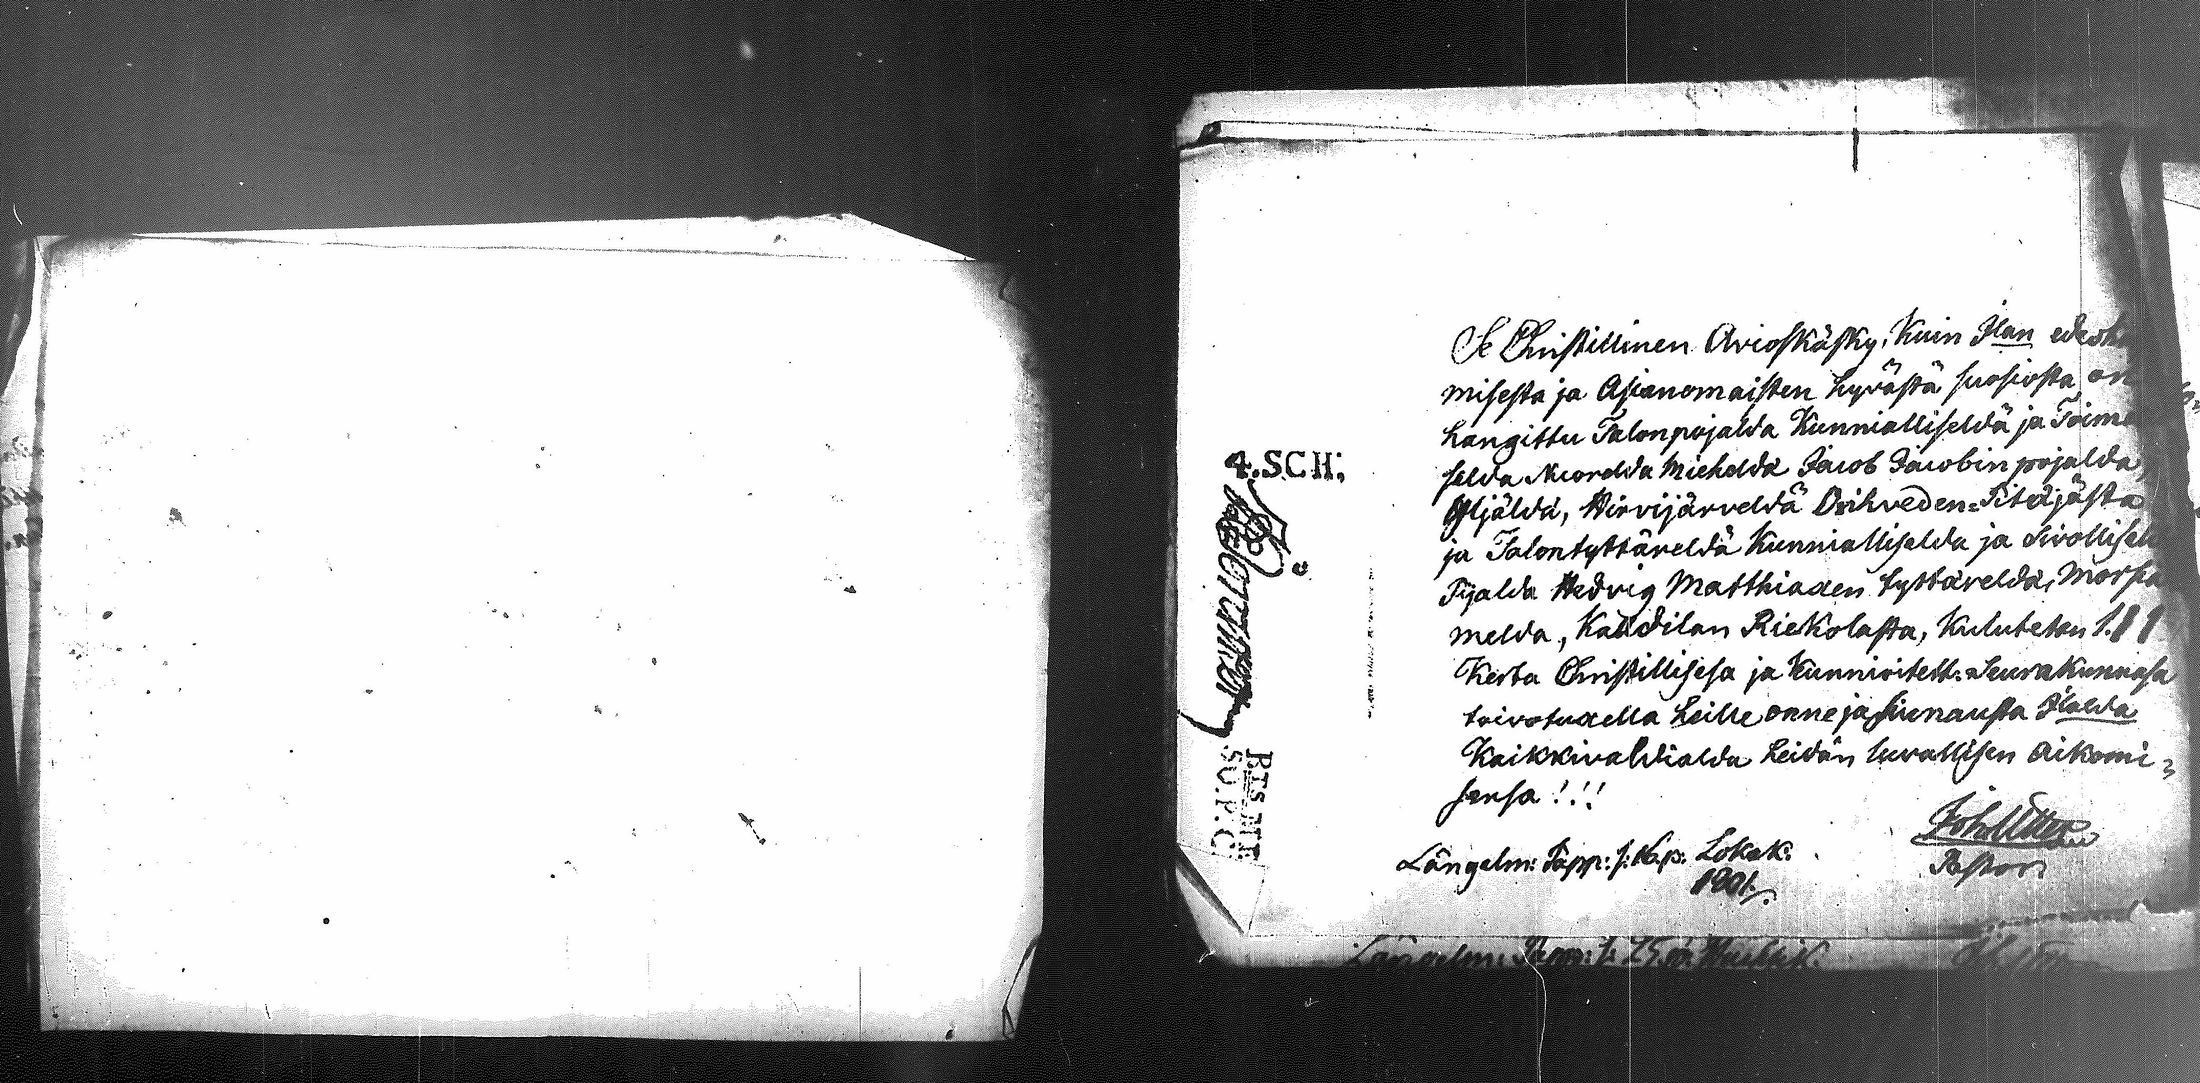 Se Christillinen Avioskäsky, Kuin Ilan edesk
misesta ja Asianomaisten hyvästä suosiosta on
hangittu Talonpojalda Kunnialliseldä ja Toime
selda Nuorelda Mieheldä Jacob Jacobin pojalda
Yljäldä, Hirvijärveldä Orihveden-Pitäjästä
ja Talontyttäreldä Kunnialliselda ja Sivollisel
Pijalda Hedvig Matthiaden tyttäreldä, Morsia
melda, Kaudilan Riekolasta, Kulutetan 1.
Kerta Christillisesä ja Kunnioitett: Seurakunnasa
toivotuxella heille onne ja Siunausta Ilalda
Kaikkivaldialda heidän luvallisen Aikomi=
sensa!!!
Längelm: Papp: s: Lokak:
1801.
Pastor
4.SCH;
Längelm: Papp: s: